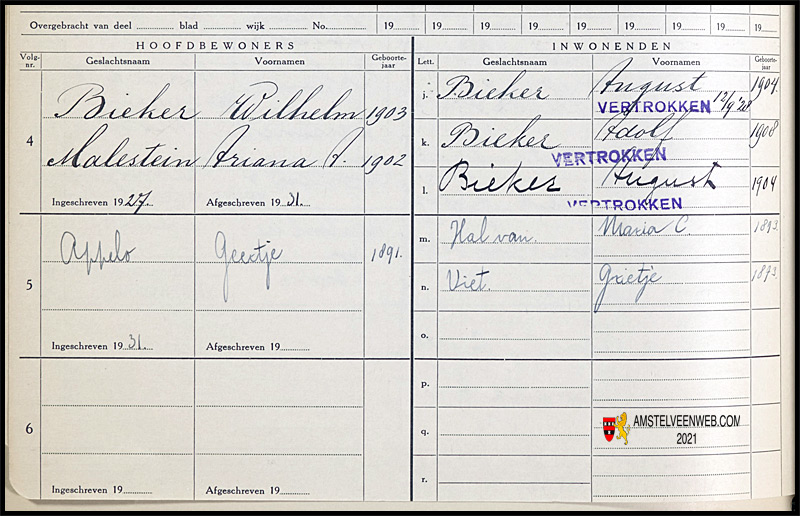 Overgebracht van deel blad wijk No. 19 19 19 19 19 19 19 19
HOOFDBEWONERS
Volg-nr. Geslachtsnaam Voornamen Geboorte-jaar
4
Bieker Wilhelm 1903
Malestein Ariana A. 1902
Ingeschreven 1927. Afgeschreven 1931.
5
Appelo Geertje 1891.
Ingeschreven 1931. Afgeschreven 19
6
Ingeschreven 19 Afgeschreven 19
INWONENDEN
Lett. Geslachtsnaam Voornamen Geboorte-jaar
j. Bieker August 1904.
VERTROKKEN 12/9 '28
k. Bieker Adolf 1908
VERTROKKEN
l. Bieker August 1904
VERTROKKEN
m. Hal van. Maria C. 1893
n. Vliet. Grietje 1873
o.
p.
q.
r.
AMSTELVEENWEB.COM
2021